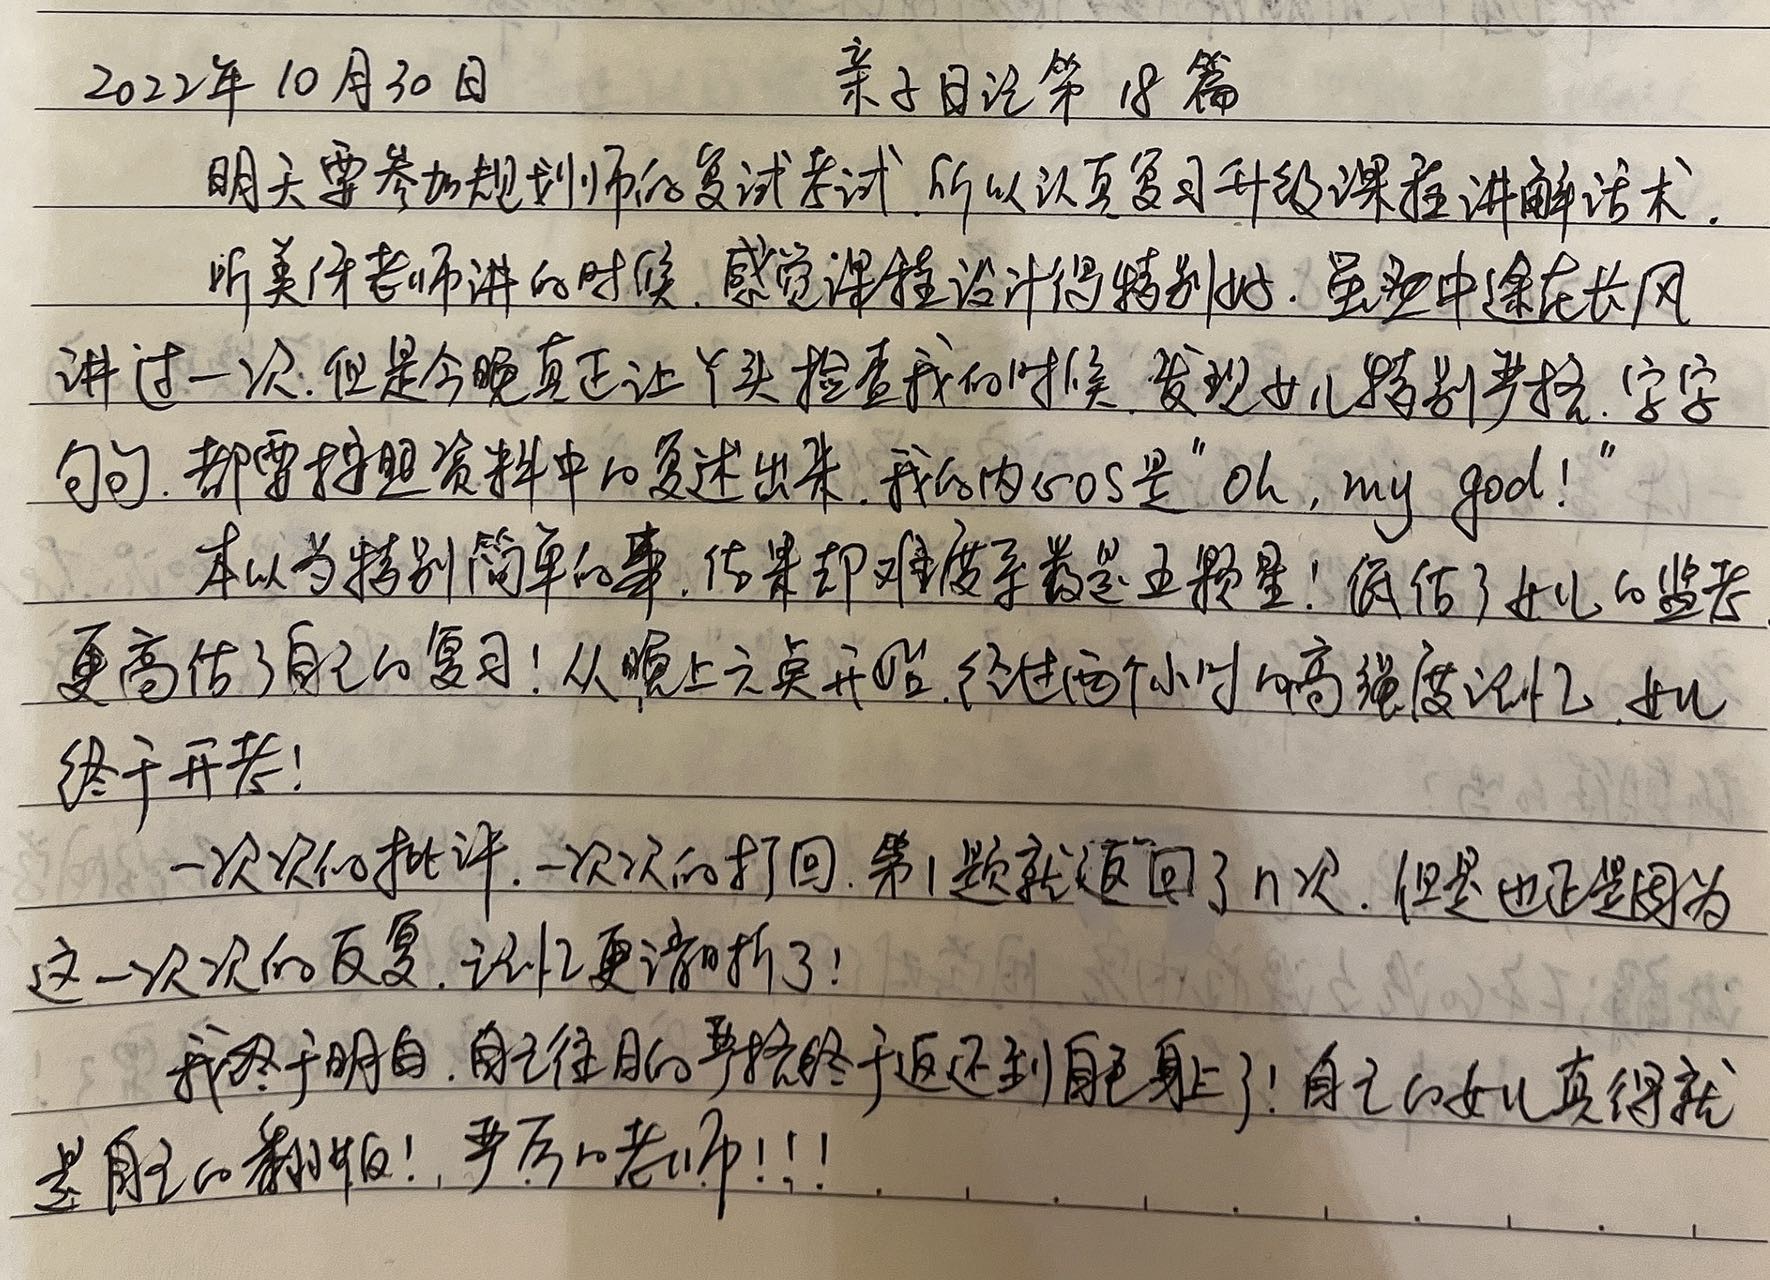 2022年10月30日 亲子日记第18篇
明天要参加规划师的复试考试,所以认真复习升级课程讲解话术.
听美伢老师讲的时候,感觉课程设计得特别好.虽然中途在长风
讲过一次.但是今晚真正让丫头检查我的时候,发现女儿特别严格.字字
句句.都要按照资料中的复述出来.我的内心OS是"Oh,my god!"
本以为特别简单的事,结果却难度系数是五颗星!低估了女儿的监考,
更高估了自己的复习!从晚上六点开始,经过两个小时的高强度记忆,女儿
终于开考!
一次次的批评.一次次的打回.第1题就返回了n次.但是也正是因为
这一次次的反复.记忆更清晰了!
我终于明白.自己往日的严格终于返还到自己身上了!自己的女儿真得就
是自己的翻版!严厉的老师!!!